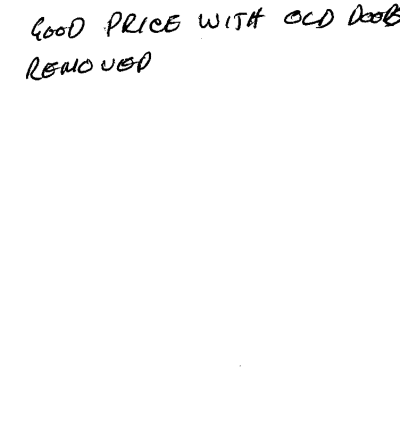 GOOD PRICE WITH OLD DOORS
REMOVED